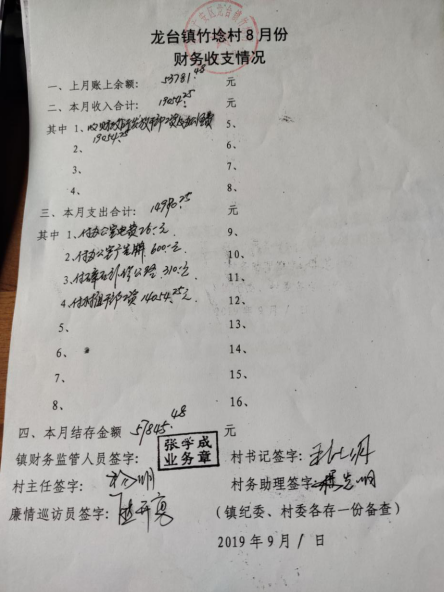 龙台镇竹埝村8月份
财务收支情况
一、上月账上余额: 53781.48 元
二、本月收入合计: 19054.25 元
其中 1、 5、
19054.25
2、 6、
3、 7、
4、 8、
三、本月支出合计: 14990.25 元
其中 1、付办公室电费26.-元 9、
2、付办公室广告牌 600.-元 10、
3、付碎石补修公路 310.-元 11、
4、付村组干部工资 14054.25元 12、
5、 13、
6、 14、
7、 15、
8、 16、
四、本月结存金额 57845.48 元
张学成
业务章
镇财务监管人员签字: 村书记签字:
村主任签字: 村务助理签字
廉情巡访员签字: (镇纪委、村委各存一份备查)
2019年9月1日